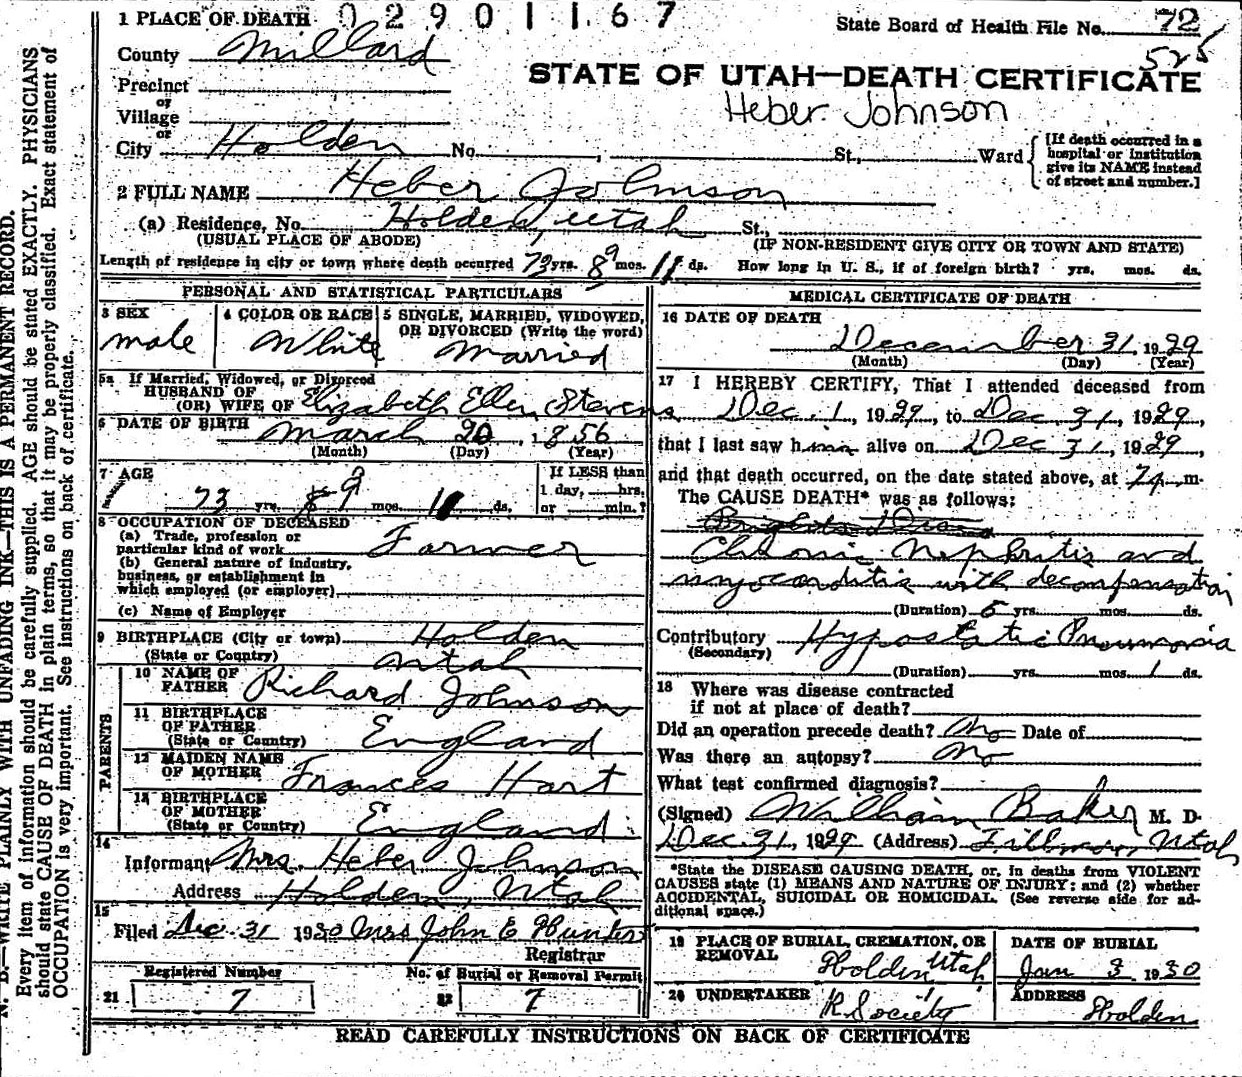 1 PLACE OF DEATH 02901167 State Board of Health File No. 72
525
County Millard
STATE OF UTAH—DEATH CERTIFICATE
Precinct
or
Heber Johnson
Village
or
City Holden No. , St., Ward [If death occurred in a hospital or institution give its NAME instead of street and number.]
2 FULL NAME Heber Johnson
(a) Residence, No. Holden, Utah St.,
(USUAL PLACE OF ABODE) (IF NON-RESIDENT GIVE CITY OR TOWN AND STATE)
Length of residence in city or town where death occurred 73 yrs. 8 9 mos. 11 ds. How long in U. S., if of foreign birth? yrs. mos. ds.
PERSONAL AND STATISTICAL PARTICULARS
3 SEX
male
4 COLOR OR RACE
White
5 SINGLE, MARRIED, WIDOWED,
OR DIVORCED (Write the word)
Married
5a If Married, Widowed, or Divorced
HUSBAND OF
(OR) WIFE OF Elizabeth Ellen Stevens
6 DATE OF BIRTH March 20, 1856
(Month) (Day) (Year)
7 AGE
73 yrs. 8 9 mos. 11 ds.
If LESS than
1 day, hrs.
or min.?
8 OCCUPATION OF DECEASED
(a) Trade, profession or
particular kind of work Farmer
(b) General nature of industry,
business, or establishment in
which employed (or employer)
(c) Name of Employer
9 BIRTHPLACE (City or town) Holden
(State or Country) Utah
PARENTS
10 NAME OF
FATHER Richard Johnson
11 BIRTHPLACE
OF FATHER
(State or Country) England
12 MAIDEN NAME
OF MOTHER Frances Hart
13 BIRTHPLACE
OF MOTHER
(State or Country) England
14
Informant Mrs. Heber Johnson
Address Holden, Utah
15
Filed Dec. 31 1930 Mrs John E Hunter
Registrar
Registered Number
21 7
No. of Burial or Removal Permit
22 7
MEDICAL CERTIFICATE OF DEATH
16 DATE OF DEATH
December 31, 1929
(Month) (Day) (Year)
17 I HEREBY CERTIFY, That I attended deceased from
Dec. 1 1929, to Dec 31, 1929,
that I last saw him alive on Dec 31, 1929,
and that death occurred, on the date stated above, at 7 m.
The CAUSE DEATH* was as follows:
Chronic Nephritis and
myocarditis with decompensation
(Duration) 5 yrs. mos. ds.
Contributory Hypostatic Pneumonia
(Secondary)
(Duration) yrs. mos. 1 ds.
18 Where was disease contracted
if not at place of death?
Did an operation precede death? No Date of
Was there an autopsy? no
What test confirmed diagnosis?
(Signed) William Baker M. D.
Dec. 31, 1929 (Address) Fillmore, Utah
*State the DISEASE CAUSING DEATH, or, in deaths from VIOLENT
CAUSES state (1) MEANS AND NATURE OF INJURY; and (2) whether
ACCIDENTAL, SUICIDAL OR HOMICIDAL. (See reverse side for ad-
ditional space.)
19 PLACE OF BURIAL, CREMATION, OR
REMOVAL Holden Utah
DATE OF BURIAL
Jan 3 1930
20 UNDERTAKER R Society
ADDRESS
Holden
READ CAREFULLY INSTRUCTIONS ON BACK OF CERTIFICATE
N. B.—WRITE PLAINLY WITH UNFADING INK—THIS IS A PERMANENT RECORD.
Every item of information should be carefully supplied. AGE should be stated EXACTLY. PHYSICIANS
should state CAUSE OF DEATH in plain terms, so that it may be properly classified. Exact statement of
OCCUPATION is very important. See instructions on back of certificate.